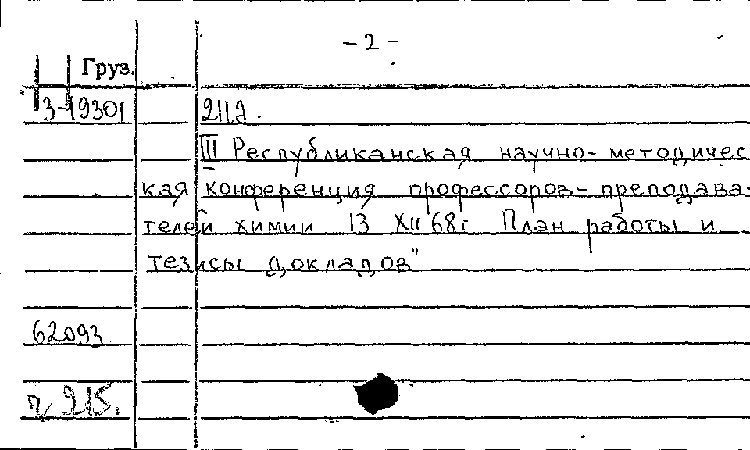 - 2 -
Груз.
3-19301
III Республиканская научно-методичес
кая конференция профессоров-преподава-
телей химии 13 XII 68г План работы и
тезисы докладов"
62093